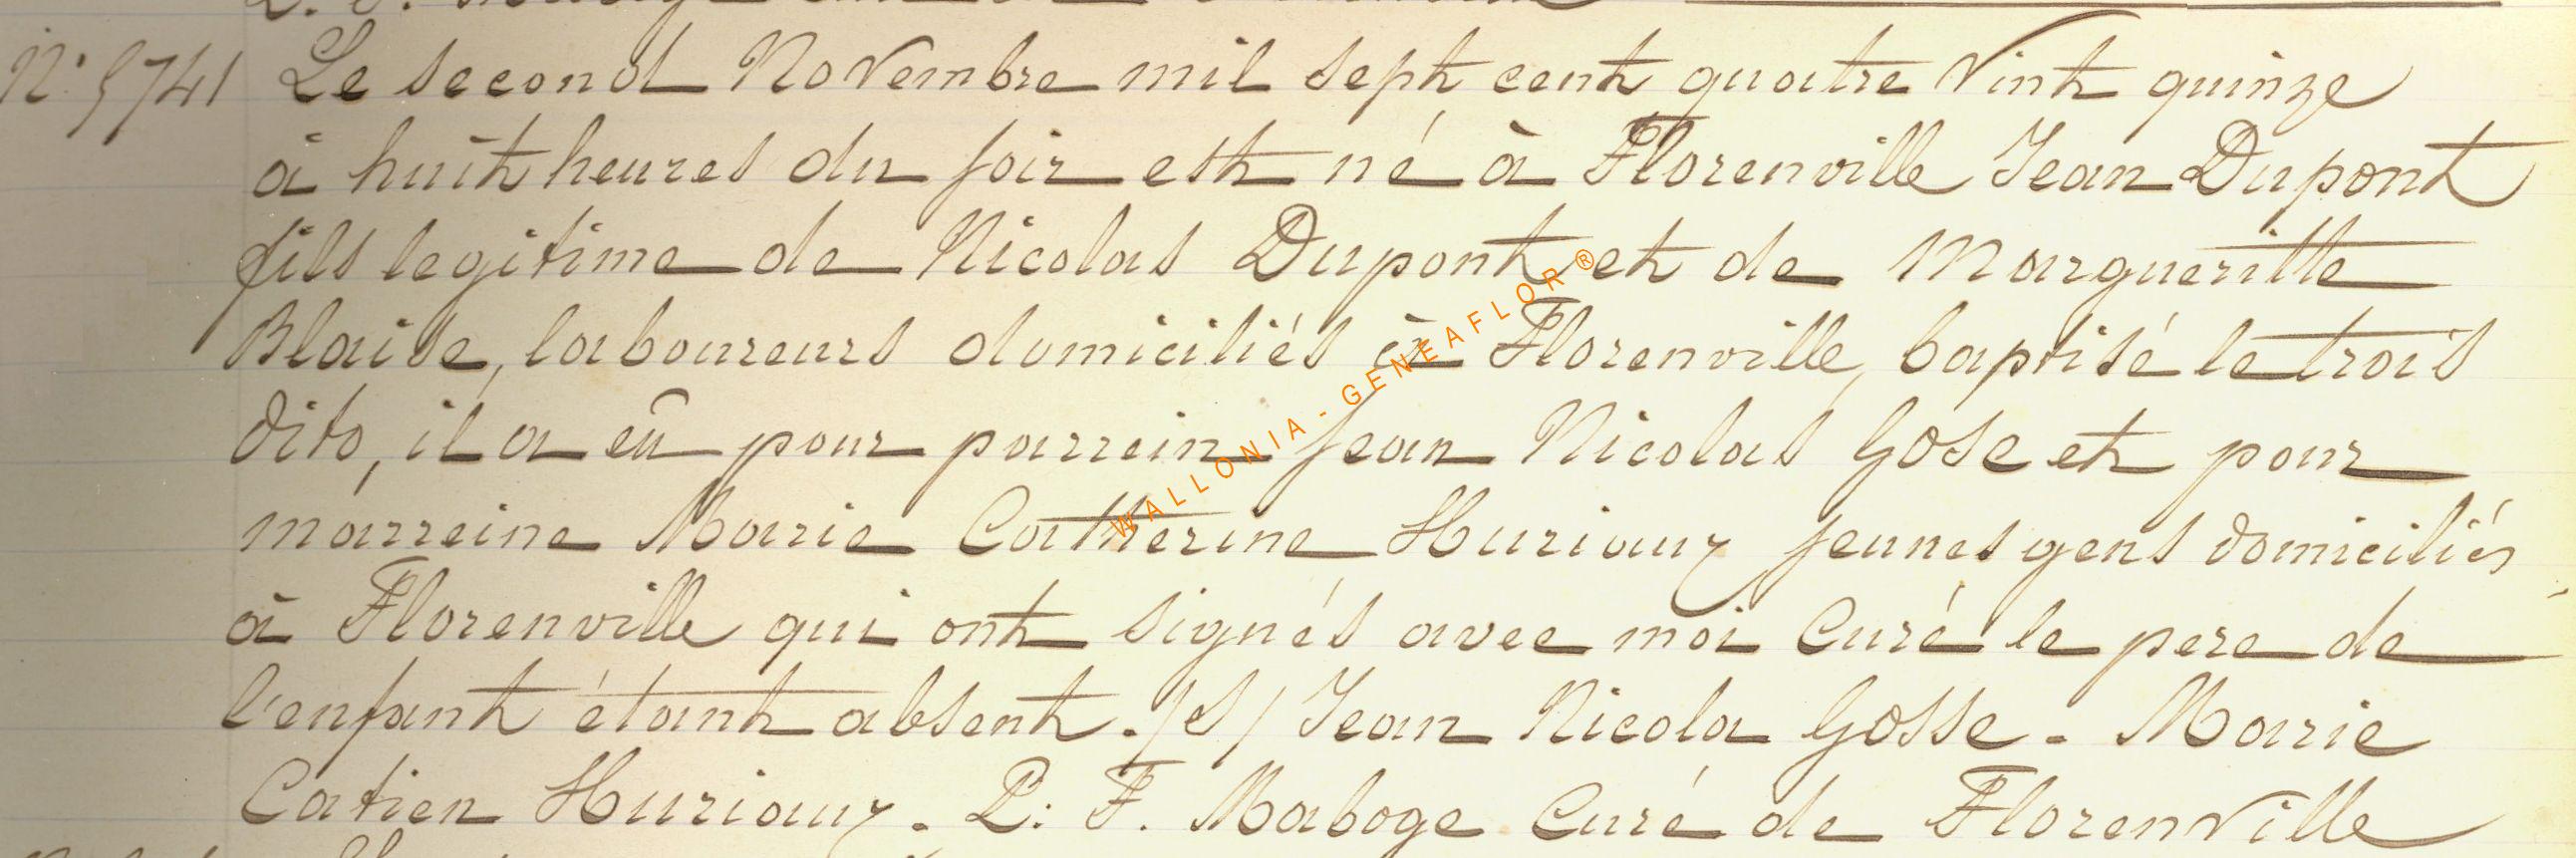 N° 5741 Le second Novembre mil sept cent quatre Vint quinze
à huit heures du soir est né à Florenville Jean Dupont
fils legitime de Nicolas Dupont et de Margueritte
Blaise, laboureurs domiciliés à Florenville, baptisé le trois
dito, il a eû pour parrein Jean Nicolas Gose et pour
marreine Marie Catherine Huriaux jeunes gens domiciliés
à Florenville qui ont signés avec moi Curé le pere de
l'enfant étant absent. /S/ Jean Nicola Gosse - Marie
Catien Huriaux. P: F. Maboge Curé de Florenville
WALLONIA - GENEAFLOR ®